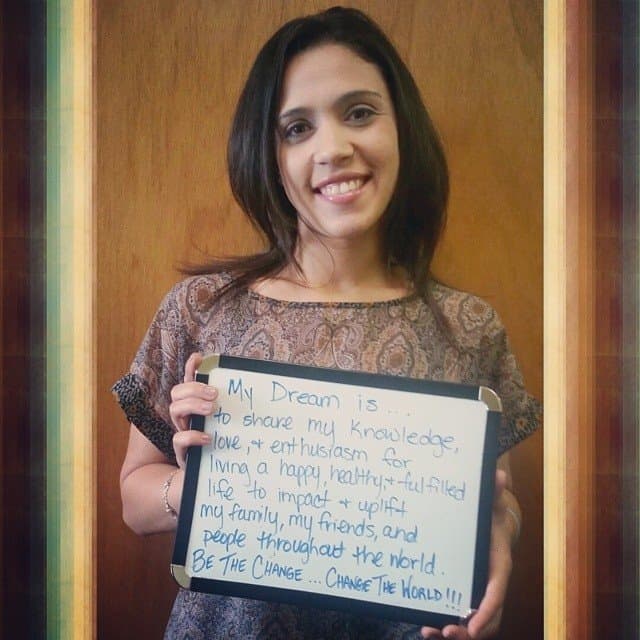 My Dream is...
to share my knowledge,
love, + enthusiasm for
living a happy, healthy + fulfilled
life to impact + uplift
my family, my friends, and
people throughout the world.
BE THE CHANGE... CHANGE THE WORLD!!!